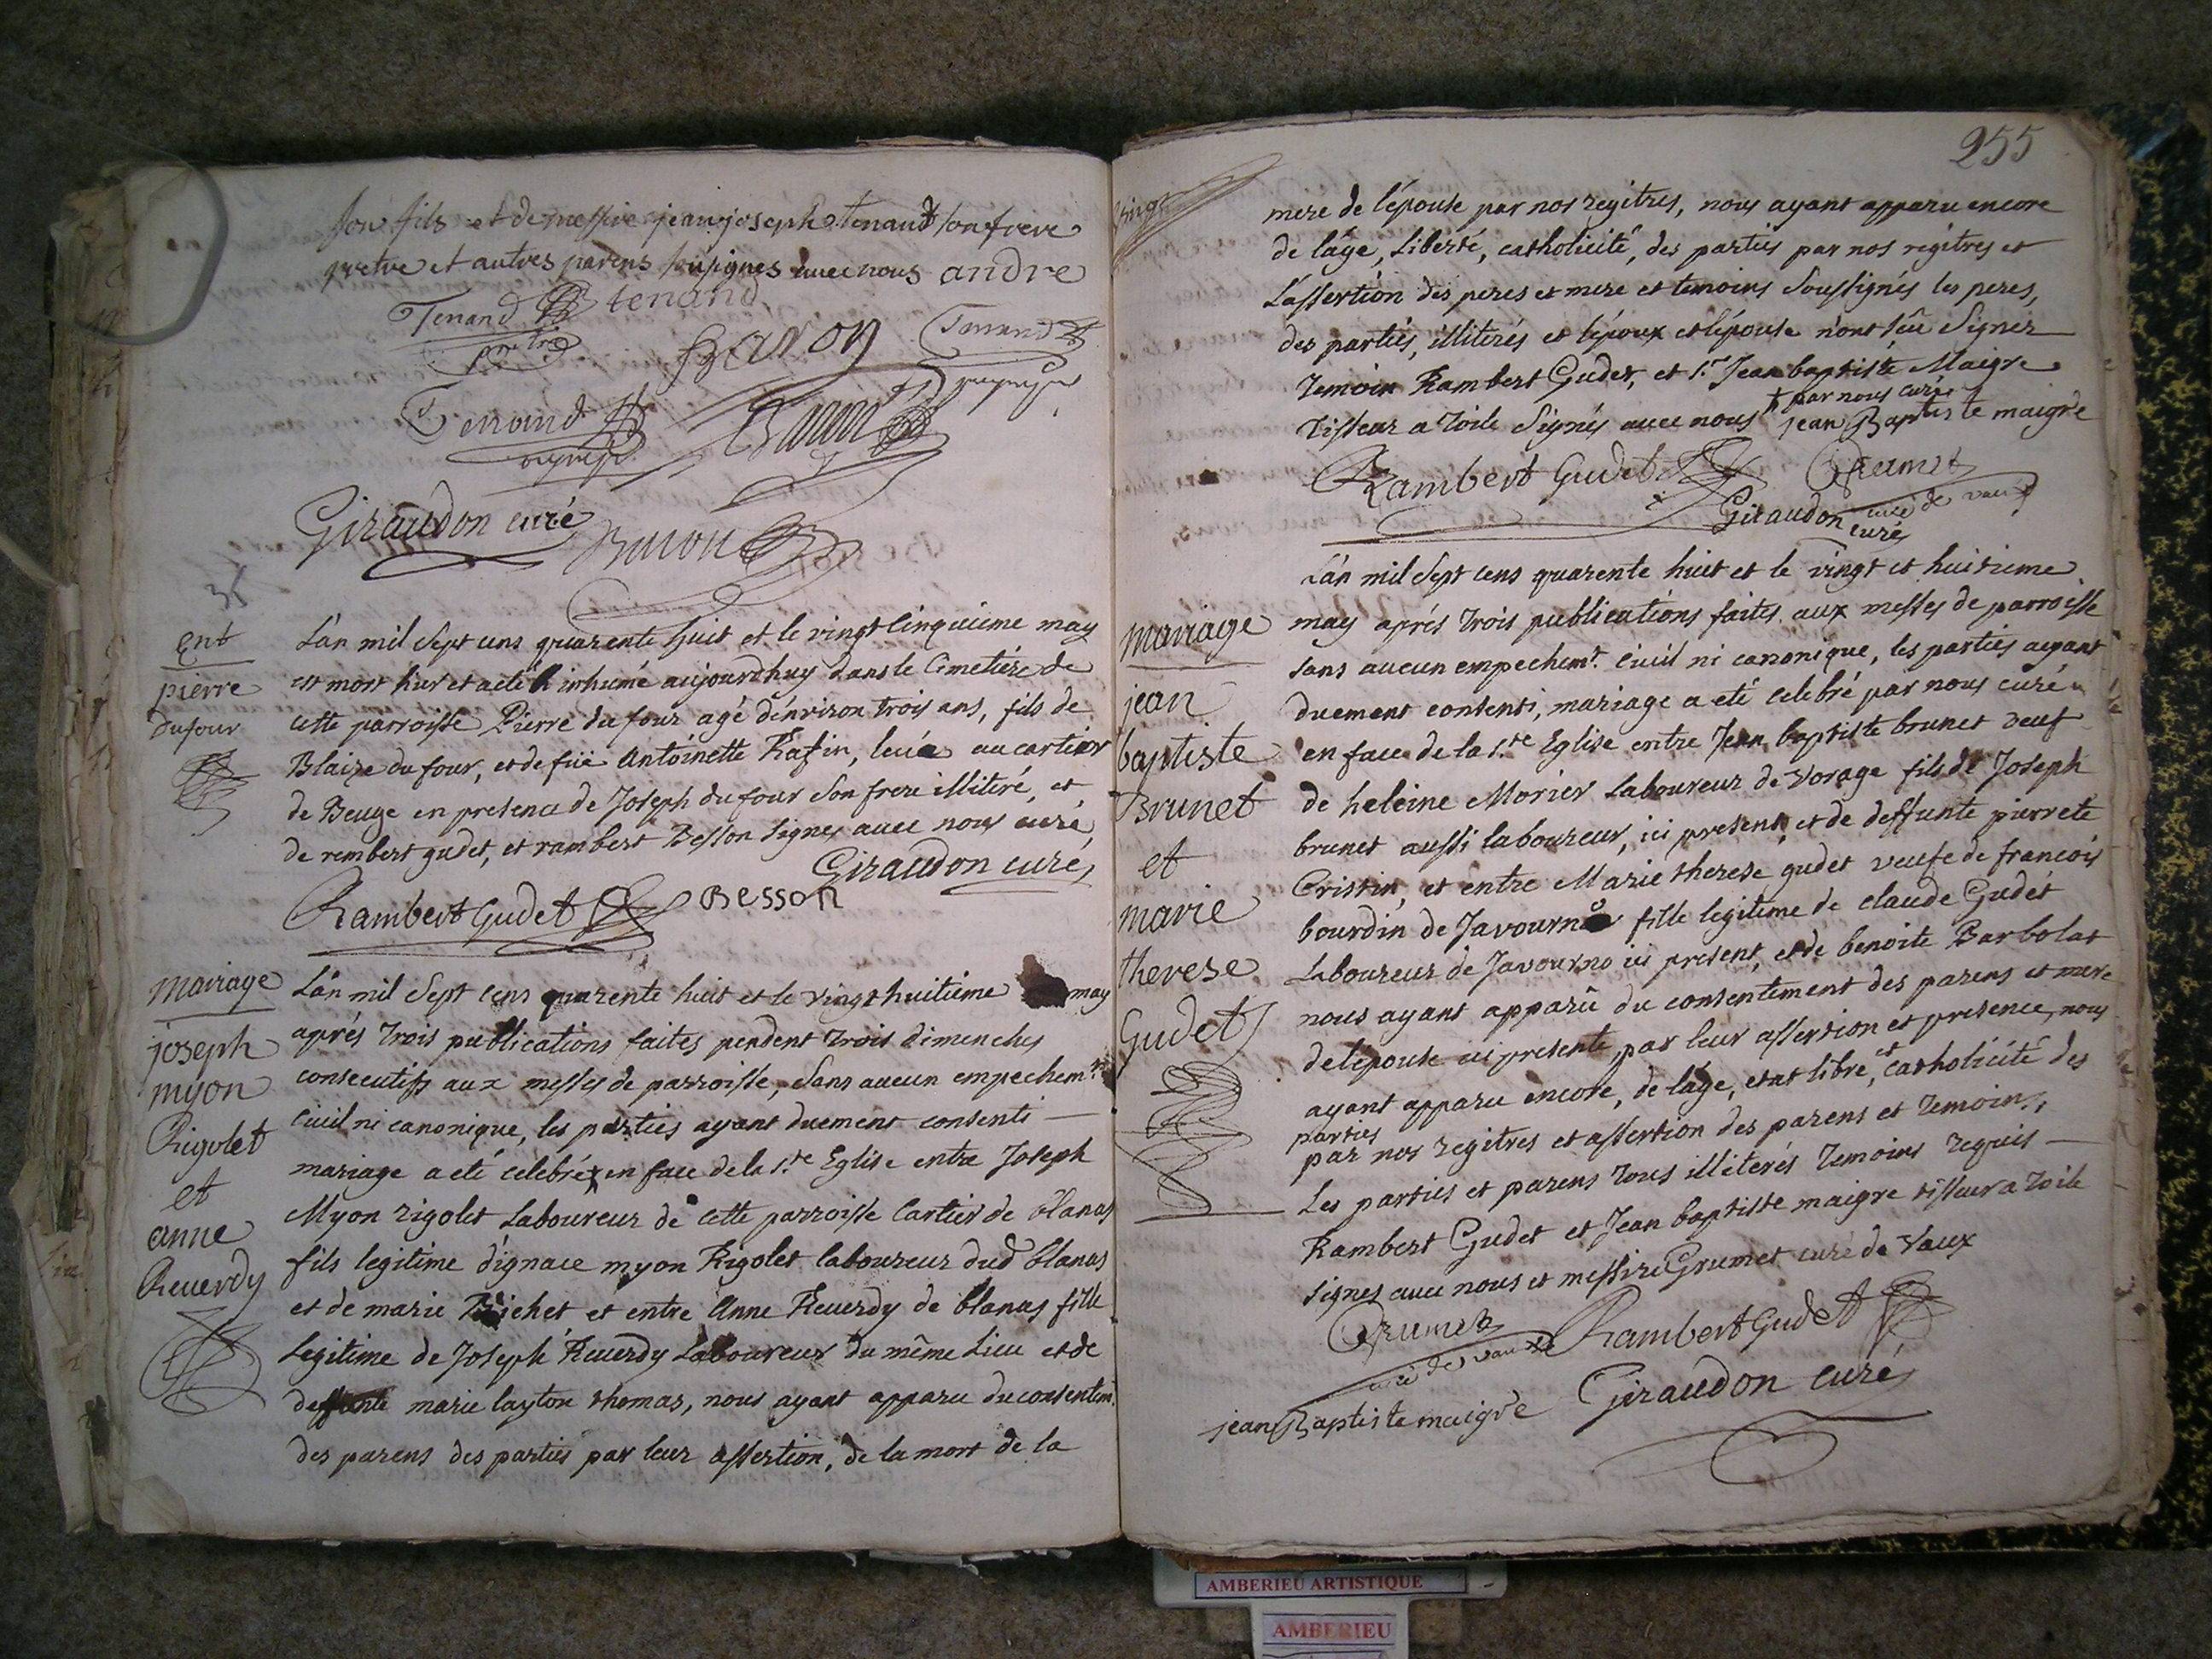 son fils et de messire jean joseph tenand son frere
pretre et autres parens sousignes avec nous andre
Tenand tenand
ptre
baron Tenand
Tenand
Giraudon curé
Buion
36
Ent
pierre
dufour
L'án mil sept cens quarente huit et le vingt cinquieme may
est mort hier et a eté inhumé aujourdhuy dans le Cimetiére de
cette parroisse Pierre du four agé d'énviron trois ans, fils de
Blaize du four, et de füe Antoinette Rafin, au cartier
de Beuge en presence de Joseph du four son frere illiteré, et
de rembert gudet, et rambert Besson signes avec nous curé
Giraudon curé
Rambert Gudet Besson
mariage
joseph
myon
Rigolet
et
anne
Reverdy
L'án mil sept cens quarente huit et le vingt huitiéme may
aprés trois publications faites pendent trois dimenches
consecutifs aux messes de parroisse, sans aucun empechemt
civil ni canonique, les parties ayant duement consenti
mariage a eté celebré en face de la s.te Eglise entre Joseph
Myon rigolet Laboureur de cette parroisse Cartier de blanas
fils legitime d'ignace myon Rigolet laboureur dud blanas
et de marie Bichet et entre Anne Reverdy de blanas fille
Legitime de Joseph Reverdy Laboureur du même Lieu et de
deffunte marie layton thomas, nous ayant apparu du consentem.
des parens des parties par leur assertion, de la mort de la
255
mere de l'épouse par nos regitres, nous ayant apparu encore
de l'áge, Liberté, catholicité, des parties par nos regitres et
L'assertion des peres et mere et temoins soussignés les peres,
des parties, illiterés et l'époux et l'épouse n'ont sçû signer
temoin Rambert Gudet, et s.r Jean baptiste Maigre
† par nous curé
tisseur a toile signés avec nous † jean Baptiste maigre
Rambert Gudet Grumet
curé de vaux
Giraudon
curé
mariage
jean
baptiste
Brunet
et
marie
therese
Gudet
L'án mil sept cens quarente huit et le vingt et huitieme
may aprés trois publications faites aux messes de parroisse
sans aucun empechemt. civil ni canonique, les parties ayant
duement consenti, mariage a eté celebré par nous curé
en face de la s.te Eglise entre Jean baptiste brunet veuf
de heleine Morier laboureur de vorage fils de Joseph
brunet aussi laboureur, ici present, et de deffunte pierrete
Cristin, et entre Marie therese gudet veufe de francois
bourdin de Javourno fille legitime de claude Gudet
Laboureur de Javourno ici present, et de benoite Barbolat
nous ayant apparû du consentement des parens et mere
de l'epouse ici presente, par leur assertion et presence, nous
ayant apparu encore, de l'age, etat libre, et catholicité des
parties
par nos regitres et assertion des parens et temoins,
Les parties et parens tous illiterés temoins requis
Rambert Gudet et Jean baptiste maigre tisseur a toile
signes avec nous et messire Grumet curé de vaux
Grumet Rambert Gudet
curé de vaux
jean Baptiste maigre Giraudon curé
AMBERIEU ARTISTIQUE
AMBERIEU